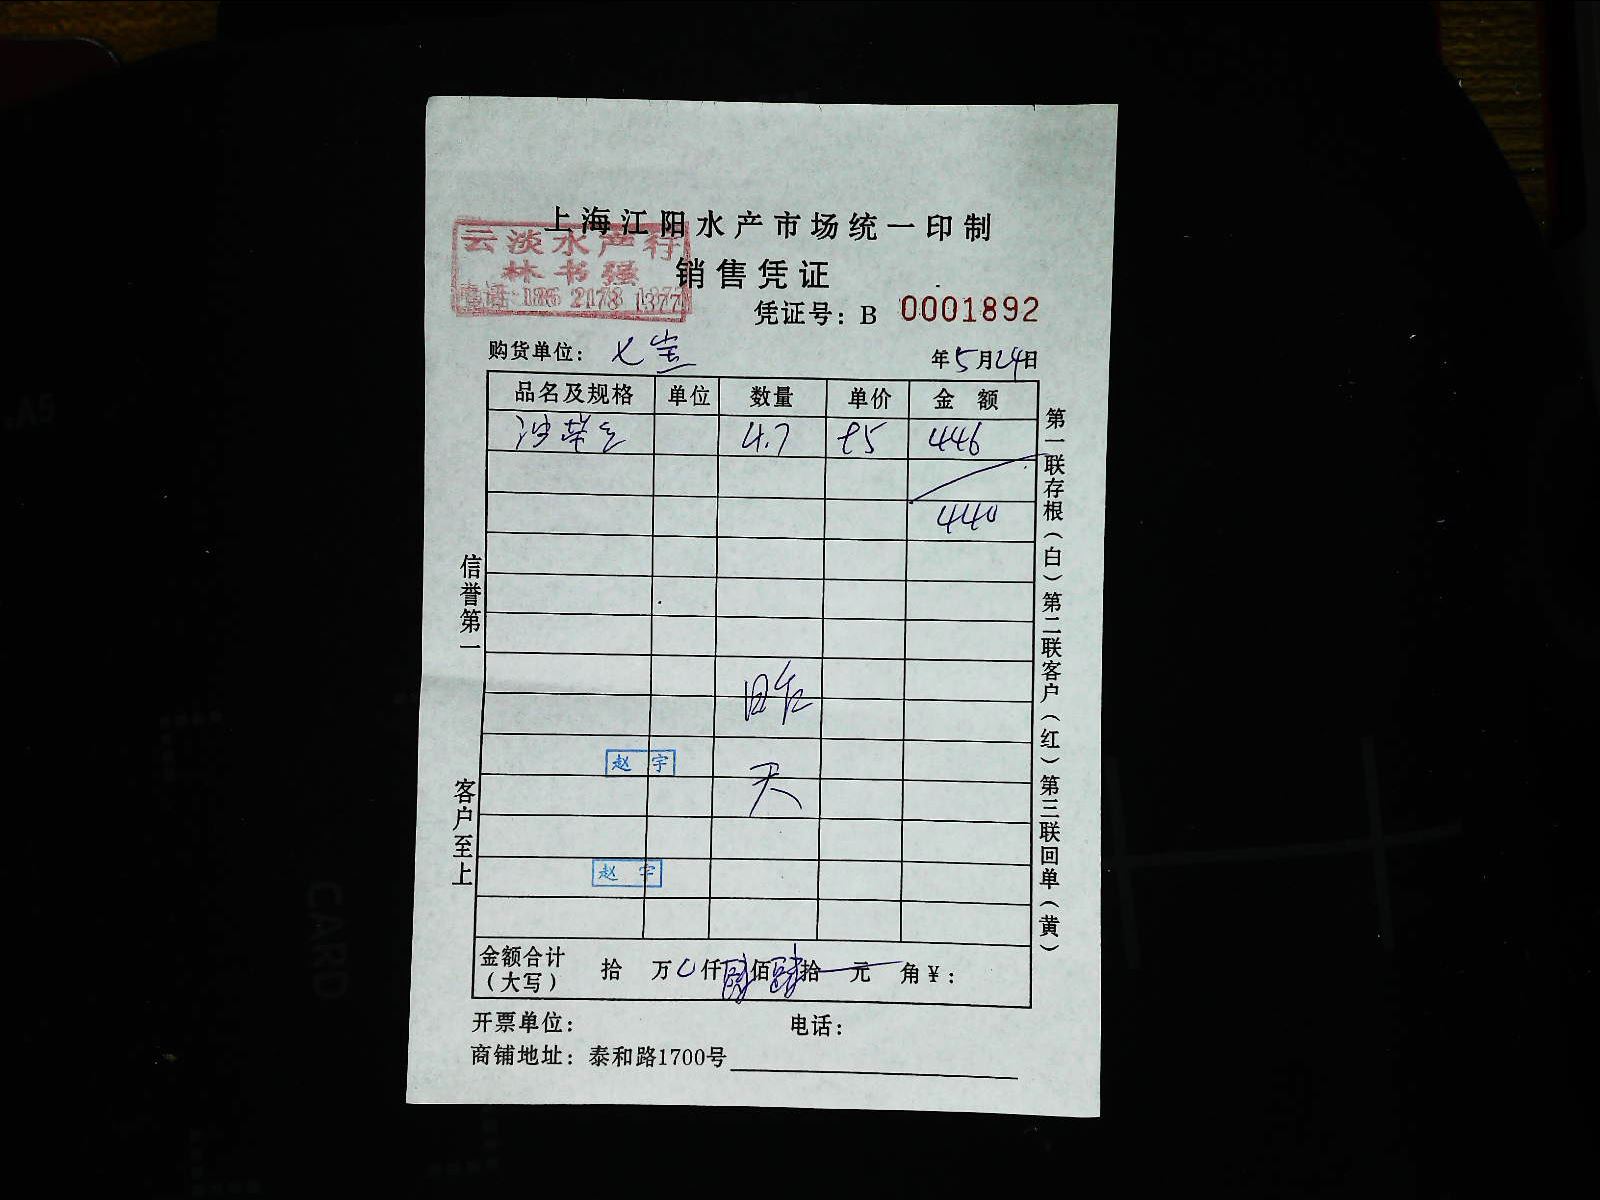 上海江阳水产市场统一印制
云淡水产行
林书强
电话:186 2173 1377
销售凭证
凭证号：B 0001892
购货单位：七宝
年5月24日
品名及规格 单位 数量 单价 金额
4.7 95 446
440
昨
天
赵宇
赵宇
信誉第一
客户至上
第一联存根（白）第二联客户（红）第三联回单（黄）
金额合计（大写） 拾 万 0 仟 肆 佰 肆 拾 元 角 ¥：
开票单位： 电话：
商铺地址：泰和路1700号
CARD
A5